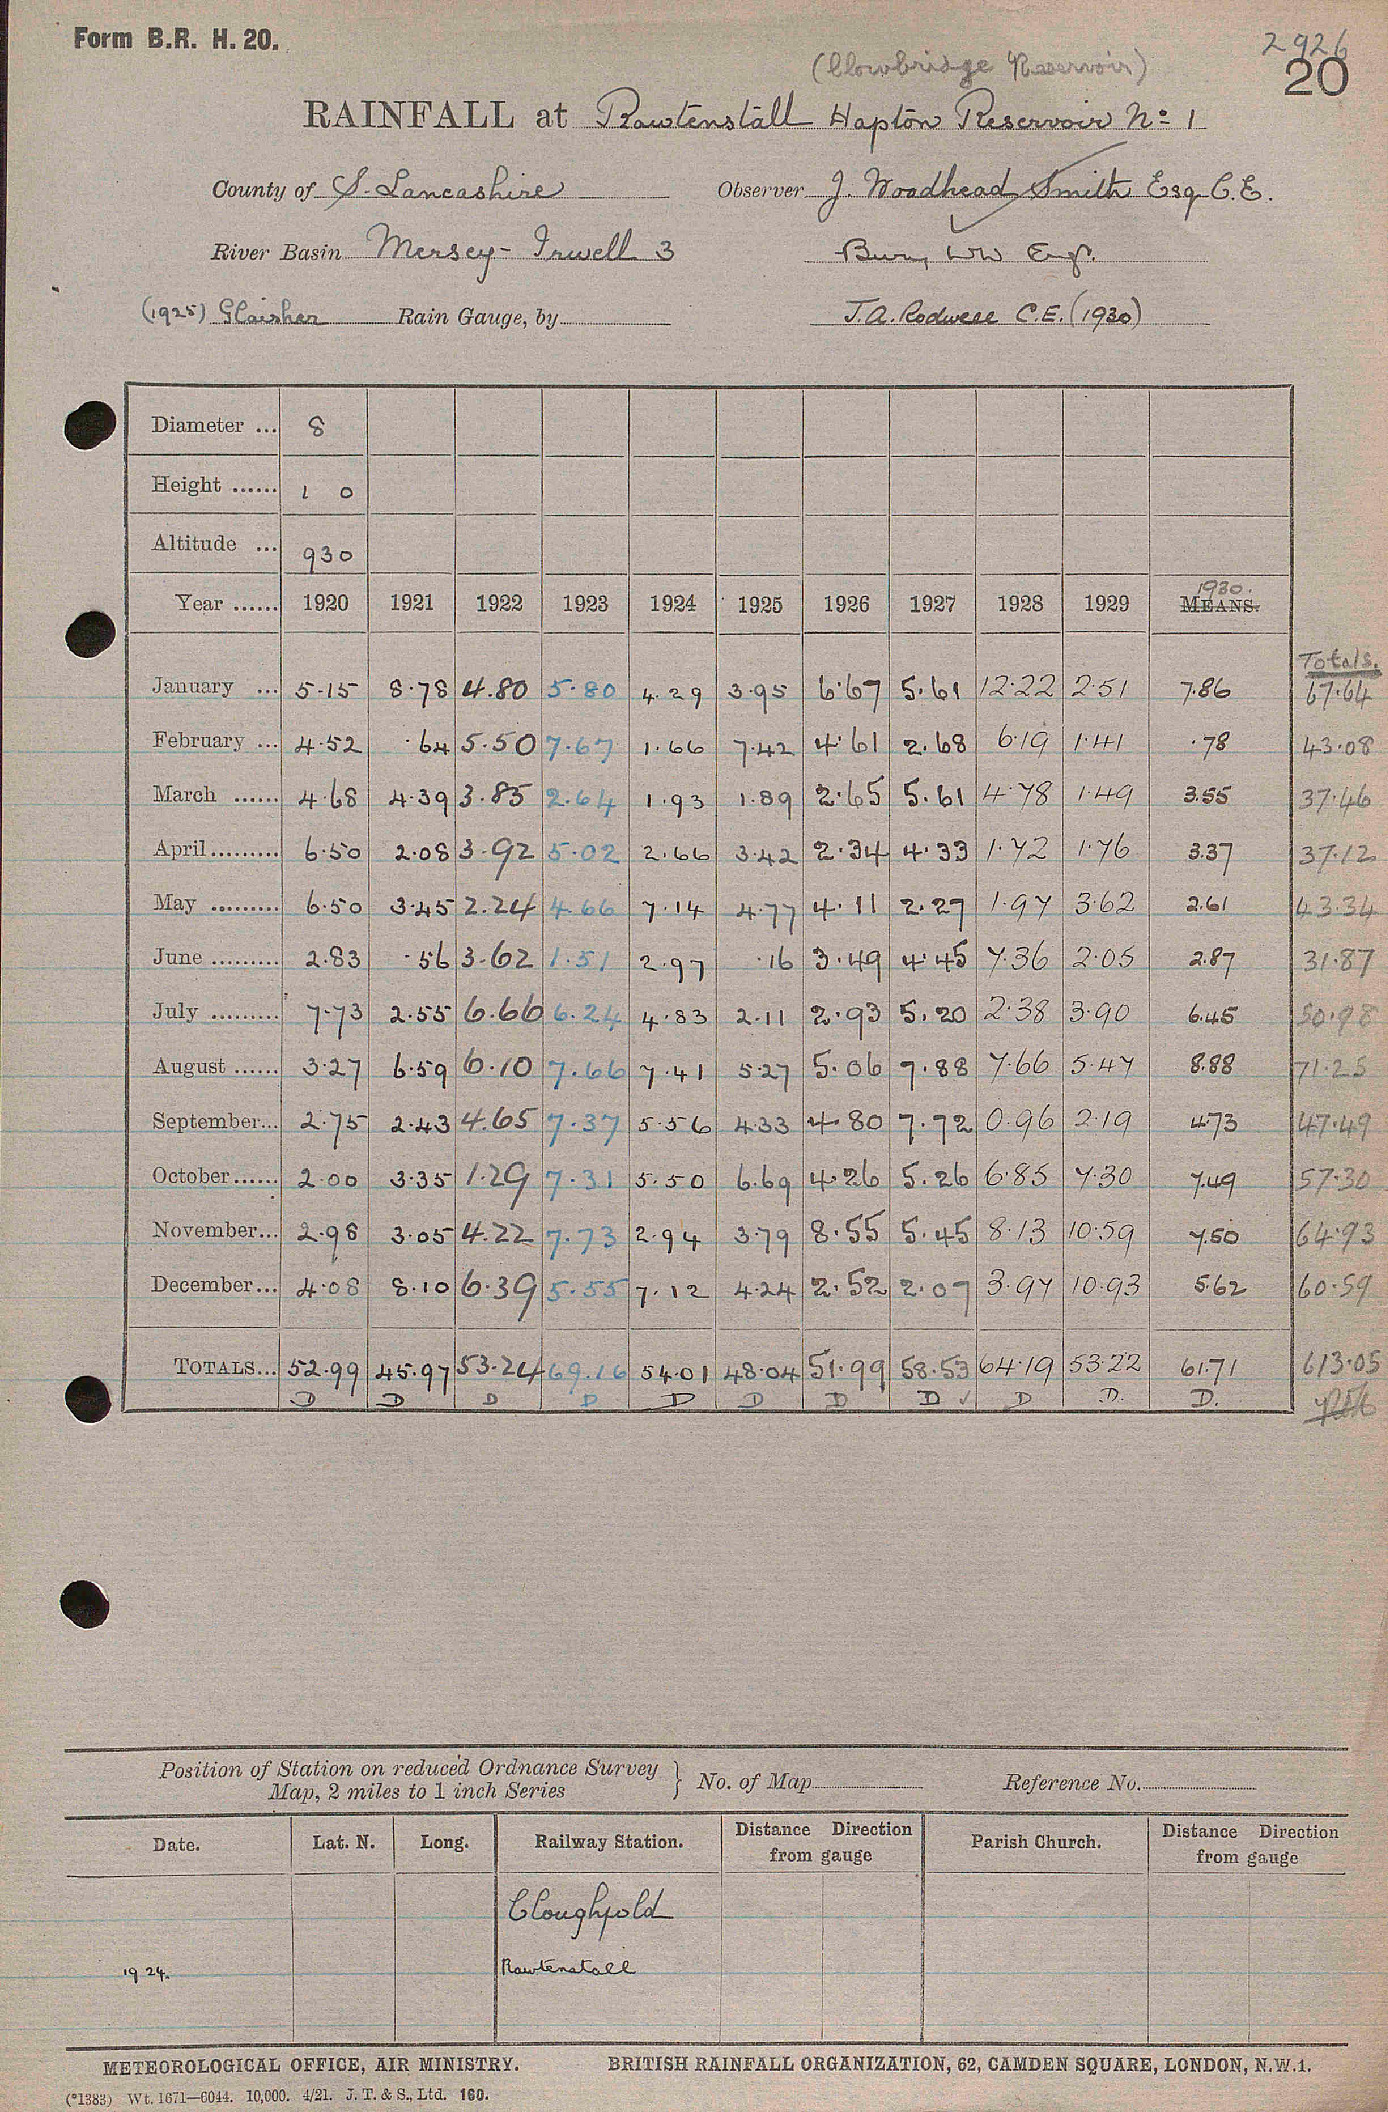 Form B.R. H. 20.
2926
(Clowbridge Reservoir)
20
RAINFALL at Rawtenstall Hapton Reservoir No 1
County of S. Lancashire Observer J. Woodhead Smith Esq C.E.
River Basin Mersey - Irwell 3 Bury WW Engr.
(1925) Glaisher Rain Gauge, by J.A. Rodwell C.E. (1930)
Diameter ... 8
Height ...... 1 0
Altitude ... 930
1930.
Year ...... 1920 1921 1922 1923 1924 1925 1926 1927 1928 1929 MEANS.
Totals.
January ... 5.15 8.78 4.80 5.80 4.29 3.95 6.67 5.61 12.22 2.51 7.86 67.64
February ... 4.52 .64 5.50 7.67 1.66 7.42 4.61 2.68 6.19 1.41 .78 43.08
March ...... 4.68 4.39 3.85 2.64 1.93 1.89 2.65 5.61 4.78 1.49 3.55 37.46
April ......... 6.50 2.08 3.92 5.02 2.66 3.42 2.34 4.33 1.72 1.76 3.37 37.12
May ......... 6.50 3.45 2.24 4.66 7.14 4.77 4.11 2.27 1.97 3.62 2.61 43.34
June ......... 2.83 .56 3.62 1.51 2.97 .16 3.49 4.45 7.36 2.05 2.87 31.87
July ......... 7.73 2.55 6.66 6.24 4.83 2.11 2.93 5.20 2.38 3.90 6.45 50.98
August ...... 3.27 6.59 6.10 7.66 7.41 5.27 5.06 7.88 7.66 5.47 8.88 71.25
September... 2.75 2.43 4.65 7.37 5.56 4.33 4.80 7.72 0.96 2.19 4.73 47.49
October...... 2.00 3.35 1.29 7.31 5.50 6.69 4.26 5.26 6.85 7.30 7.49 57.30
November... 2.98 3.05 4.22 7.73 2.94 3.79 8.55 5.45 8.13 10.59 7.50 64.93
December... 4.08 8.10 6.39 5.55 7.12 4.24 2.52 2.07 3.97 10.93 5.62 60.59
TOTALS... 52.99 45.97 53.24 69.16 54.01 48.04 51.99 58.53 64.19 53.22 61.71 613.05
D D D D D D D D ✓ D D. D.
Position of Station on reduced Ordnance Survey
Map, 2 miles to 1 inch Series } No. of Map Reference No.
Date. Lat. N. Long. Railway Station. Distance Direction from gauge Parish Church. Distance Direction from gauge
Cloughfold
1924. Rawtenstall
METEOROLOGICAL OFFICE, AIR MINISTRY. BRITISH RAINFALL ORGANIZATION, 62, CAMDEN SQUARE, LONDON, N.W.1.
(*1383) Wt. 1671—6044. 10,000. 4/21. J. T. & S., Ltd. 160.